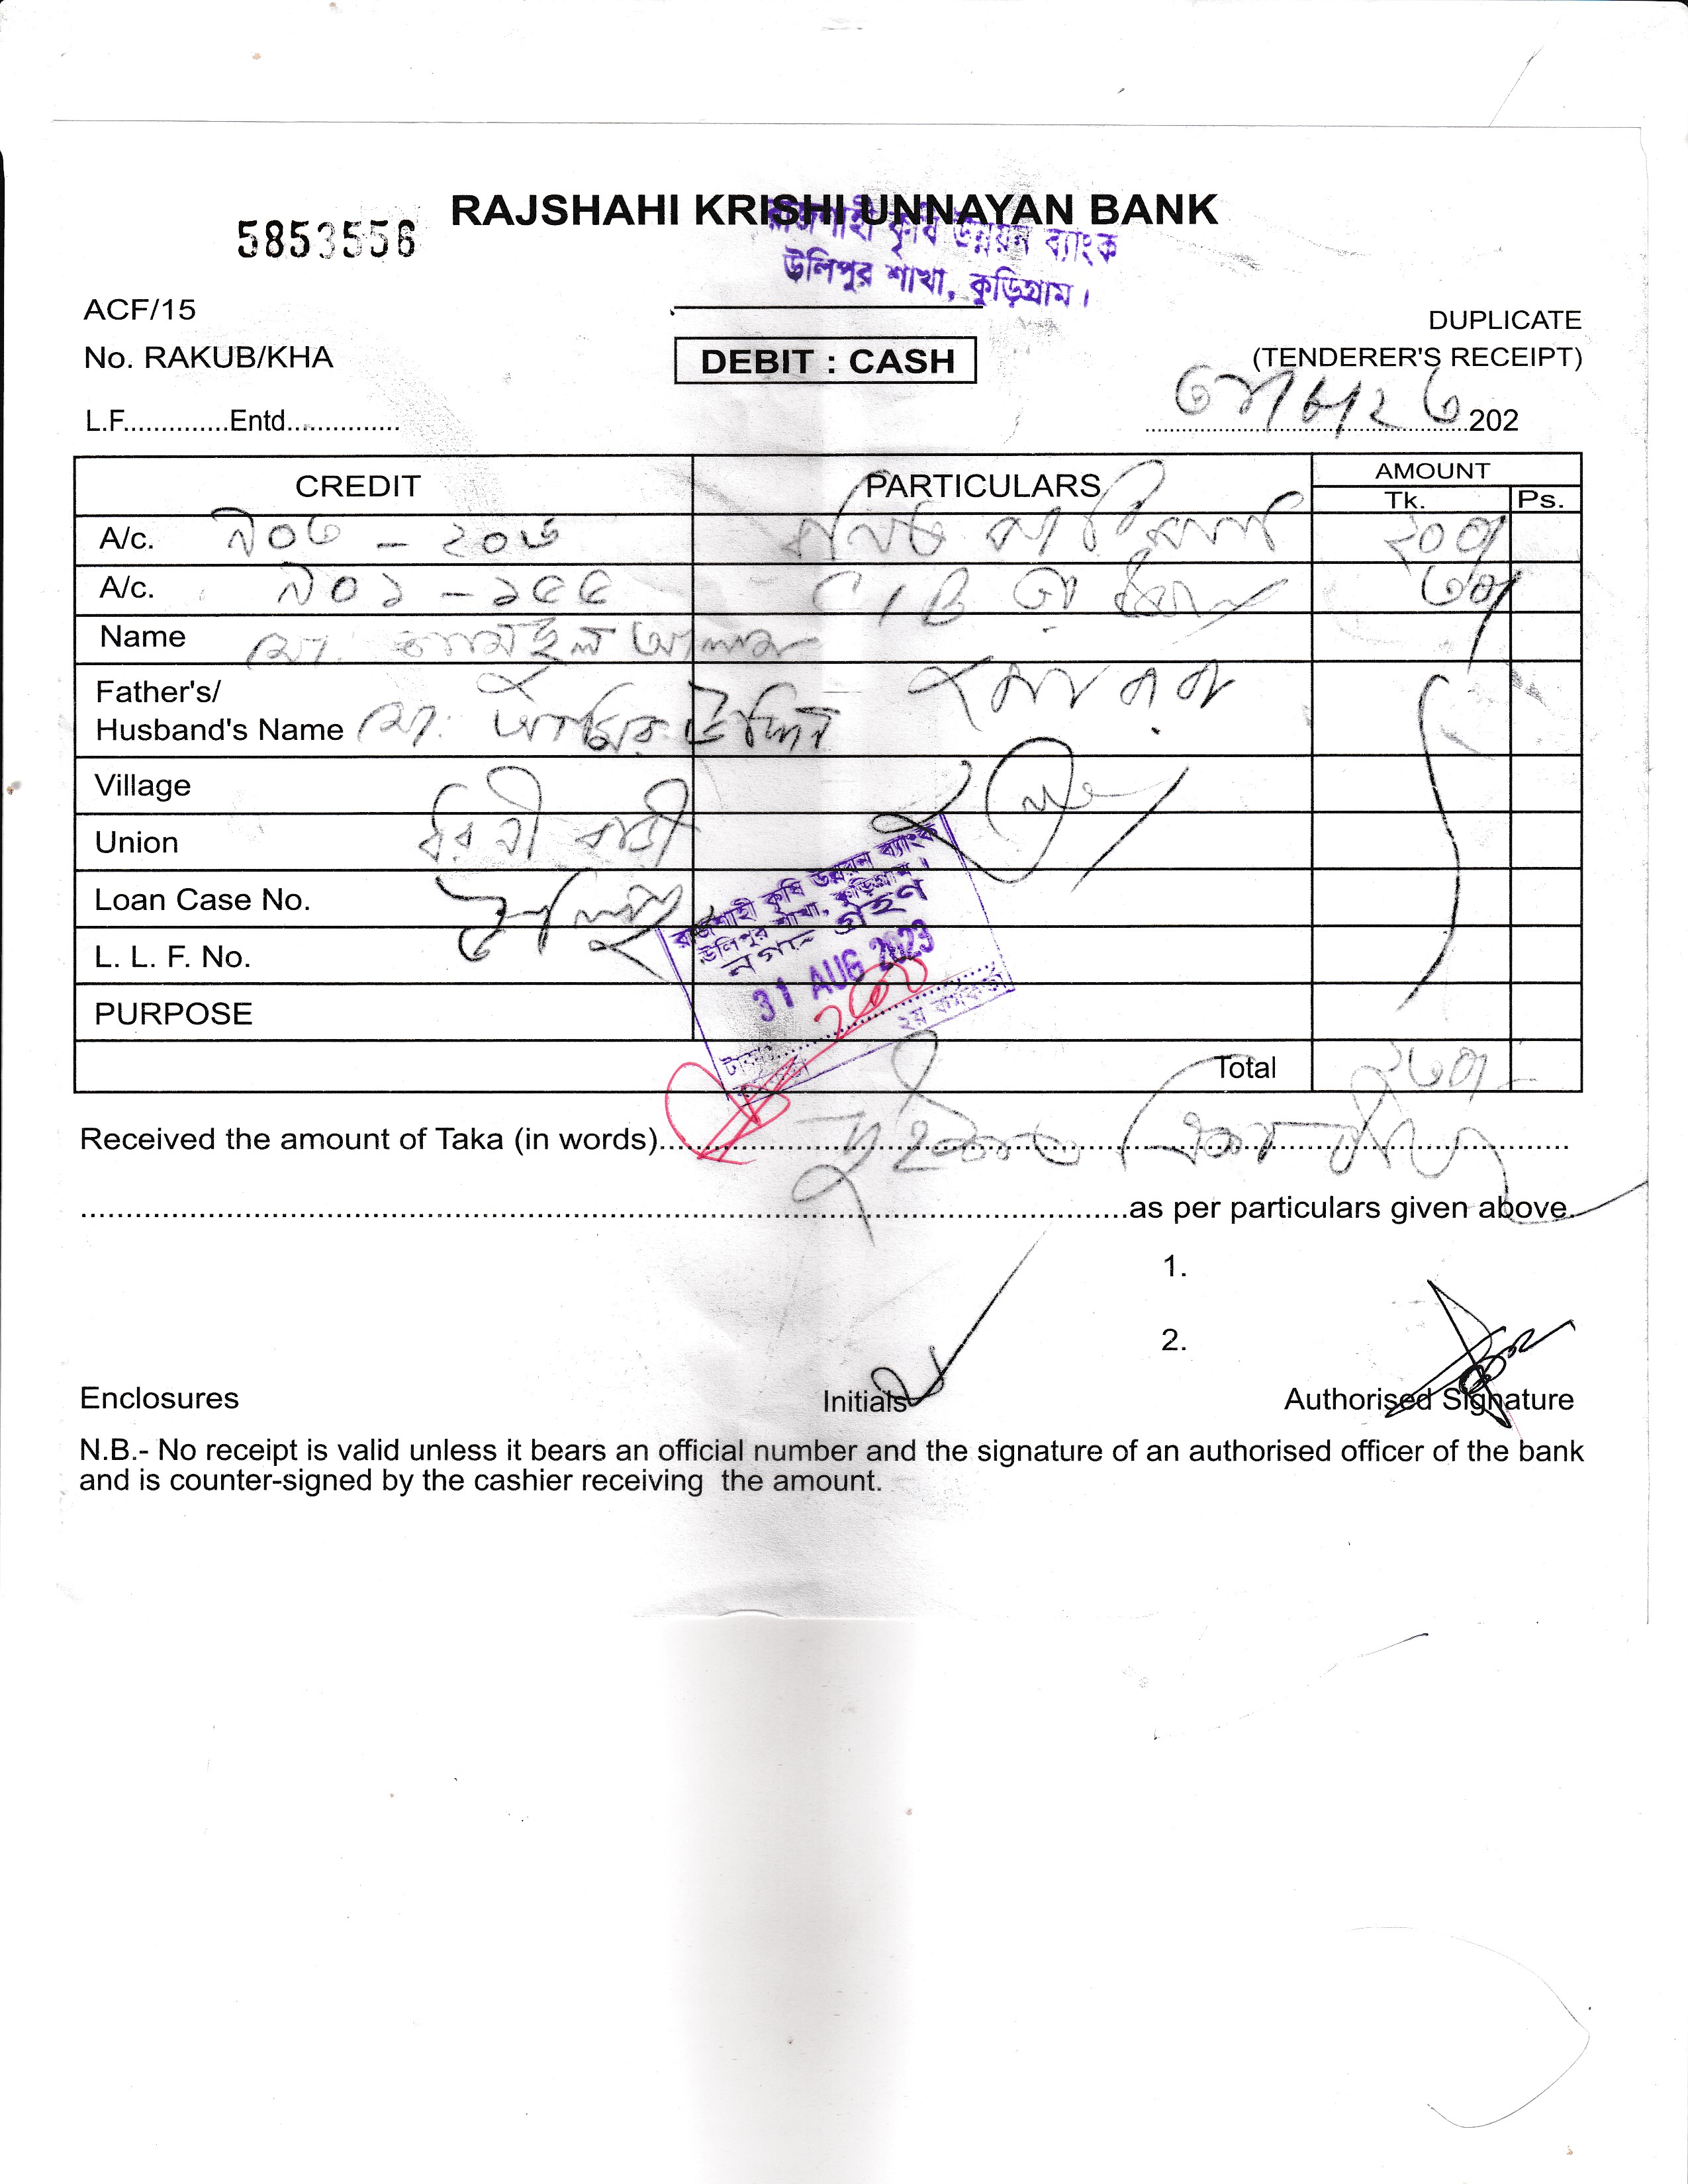 RAJSHAHI KRISHI UNNAYAN BANK
5853556
রাজশাহী কৃষি উন্নয়ন ব্যাংক
উলিপুর শাখা, কুড়িগ্রাম।
ACF/15
DUPLICATE
No. RAKUB/KHA
DEBIT : CASH
(TENDERER'S RECEIPT)
L.F.............Entd...............
202
CREDIT PARTICULARS AMOUNT
Tk. Ps.
A/c. ৯০৩ - ২০৬ ২০০/
A/c. ৯০১ - ১৫৫ CIB ৩০/
Name মো:
Father's/
Husband's Name মো: উদ্দিন
Village
Union ধরনী বাড়ী
Loan Case No.
L. L. F. No.
PURPOSE
রাজশাহী কৃষি উন্নয়ন ব্যাংক
উলিপুর শাখা, কুড়িগ্রাম।
নগদ গ্রহণ
31 AUG 2023
টাকা
২য় কর্মকর্তা
Total ২৩০/-
Received the amount of Taka (in words) দুইশত ত্রিশ
as per particulars given above.
1.
2.
Enclosures Initials Authorised Signature
N.B.- No receipt is valid unless it bears an official number and the signature of an authorised officer of the bank
and is counter-signed by the cashier receiving the amount.